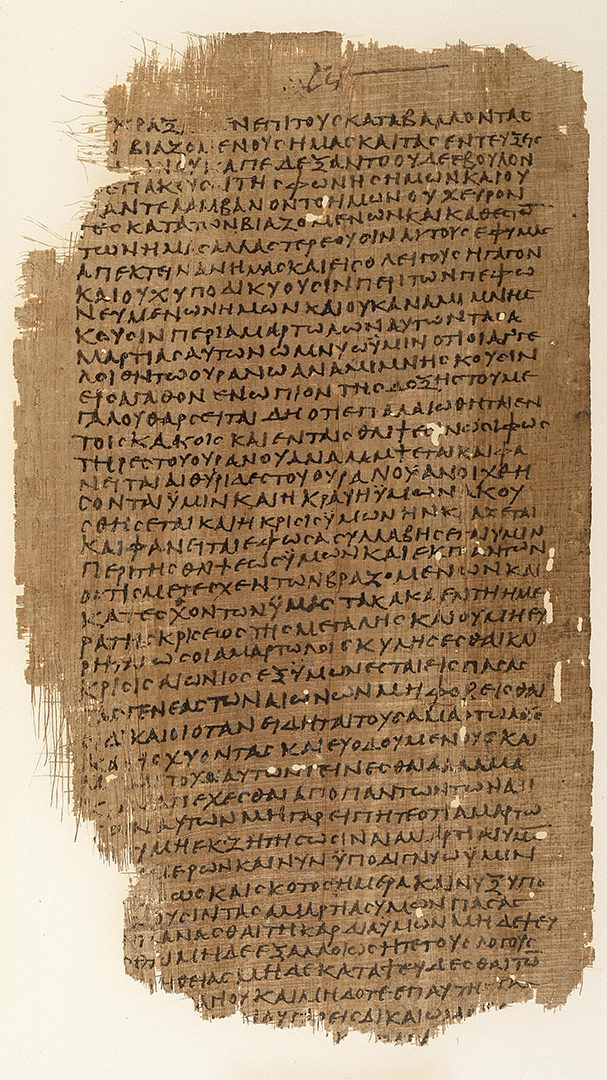 ΚΡΑΞ ΝΕΠΙΤΟΥΣΚΑΤΑΒΑΛΛΟΝΤΑΣ
ΒΙΑΖΟΜΕΝΟΥΣΗΜΑΣΚΑΙΤΑΣΕΝΤΕΥΞΕΙΣ
ΑΠΕΔΕΞΑΝΤΟΟΥΔΕΕΒΟΥΛΟΝ
ΕΠΑΚΟΥΣΑΙΤΗΣΦΩΝΗΣΗΜΩΝΚΑΙΟΥ
ΑΝΤΕΛΑΜΒΑΝΟΝΤΟΗΜΩΝΟΥΧΕΥΡΟΝ
ΤΕΣΚΑΤΑΤΩΝΒΙΑΖΟΜΕΝΩΝΚΑΙΚΑΘΕΣΤΩ
ΤΩΝΗΜΑΣΑΛΛΑΣΤΕΡΕΟΥΣΙΝΑΥΤΟΥΣΕΦΥΜΑΣ
ΑΠΕΚΤΕΙΝΑΝΗΜΑΣΚΑΙΕΙΣΟΛΕΙΓΟΥΣΗΓΑΓΟΝ
ΚΑΙΟΥΧΥΠΟΔΙΚΥΟΥΣΙΝΠΕΡΙΤΩΝΠΕΦΩ
ΝΕΥΜΕΝΩΝΗΜΩΝΚΑΙΟΥΚΑΝΑΜΙΜΝΗΣ
ΚΟΥΣΙΝΠΕΡΙΑΜΑΡΤΩΛΩΝΑΥΤΩΝΤΑΣΑ
ΜΑΡΤΙΑΣΑΥΤΩΝΩΜΝΥΩΫΜΙΝΟΤΙΟΙΑΓΓΕ
ΛΟΙΕΝΤΩΟΥΡΑΝΩΑΝΑΜΙΜΝΗΣΚΟΥΣΙΝ
ΕΙΣΑΓΑΘΟΝΕΝΩΠΙΟΝΤΗΣΔΟΞΗΣΤΟΥΜΕ
ΓΑΛΟΥΘΑΡΣΕΙΤΑΙΔΗΟΤΙΕΠΑΛΑΙΩΘΗΤΑΙΕΝ
ΤΟΙΣΚΑΚΟΙΣΚΑΙΕΝΤΑΙΣΘΛΙΨΕΣΙΝΩΣΙΦΩΣ
ΤΗΡΕΣΤΟΥΟΥΡΑΝΟΥΑΝΑΛΑΜΨΕΤΑΙΚΑΙΦΑ
ΝΕΙΤΑΙΑΙΘΥΡΙΔΕΣΤΟΥΟΥΡΑΝΟΥΑΝΟΙΧΘΗ
ΣΟΝΤΑΙΫΜΙΝΚΑΙΗΚΡΑΥΓΗΫΜΩΝΑΚΟΥ
ΣΘΗΣΕΤΑΙΚΑΙΗΚΡΙΣΙΣΫΜΩΝΗΝΚΡΑΖΕΤΑΙ
ΚΑΙΦΑΝΕΙΤΑΙΕΦΩΣΑΣΥΛΛΑΒΗΣΕΤΑΙΥΜΙΝ
ΠΕΡΙΤΗΣΘΛΙΨΕΩΣΫΜΩΝΚΑΙΕΚΠΑΝΤΩΝ
ΟΣΤΙΣΜΕΤΕΣΧΕΝΤΩΝΒΙΑΖΟΜΕΝΩΝΚΑΙ
ΚΑΤΕΣΘΟΝΤΩΝΫΜΑΣΤΑΚΑΚΑΕΝΤΗΗΜΕ
ΡΑΤΗΣΚΡΙΣΕΩΣΤΗΣΜΕΓΑΛΗΣΚΑΙΟΥΜΗΕΥ
ΡΗΤΑΙΩΣΟΙΑΜΑΡΤΩΛΟΙΣΚΥΛΗΣΕΣΘΑΙΚΑΙ
ΚΡΙΣΙΣΑΙΩΝΙΟΣΕΞΫΜΩΝΕΣΤΑΙΕΙΣΠΑΣΑΣ
ΤΑΣΓΕΝΕΑΣΤΩΝΑΙΩΝΩΝΜΗΦΟΒΕΙΣΘΑΙ
ΔΙΚΑΙΟΙΟΤΑΝΕΙΔΗΤΑΙΤΟΥΣΑΜΑΡΤΩΛΟΥΣ
ΚΑΤΙΣΧΥΟΝΤΑΣΚΑΙΕΥΟΔΟΥΜΕΝΟΥΣΚΑΙ
ΤΟΧΟΙΑΥΤΩΝΓΕΙΝΕΣΘΑΙΑΛΛΑΜΑ
ΑΠΕΧΕΣΘΑΙΑΠΟΠΑΝΤΩΝΤΩΝΑΔΙ
ΑΥΤΩΝΜΗΓΑΡΕΙΠΗΤΕΟΤΙΑΜΑΡΤΩ
ΥΜΗΕΚΖΗΤΗΣΩΣΙΝΑΙΑΜΑΡΤΙΑΙΥΜΩ
ΜΕΡΩΝΚΑΙΝΥΝΫΠΟΔΙΓΝΥΩΫΜΙΝ
ΩΣΚΑΙΣΚΟΤΟΣΗΜΕΡΑΚΑΙΝΥΞΥΠΟ
ΟΥΣΙΝΤΑΣΑΜΑΡΤΙΑΣΥΜΩΝΠΑΣΑΣ
ΠΛΑΝΑΣΘΑΙΤΗΚΑΡΔΙΑΥΜΩΝΜΗΔΕΨΕΥ
ΜΗΔΕΕΞΑΛΛΟΙΩΣΗΤΕΤΟΥΣΛΟΓΟΥΣ
ΗΘΕΙΑΣΜΗΔΕΚΑΤΑΨΕΥΔΕΣΘΑΙΤΩ
ΓΙΟΥΚΑΙΜΗΔΟΤΕΕΠΑΥΤΗ
ΔΙΚΑΙΩ